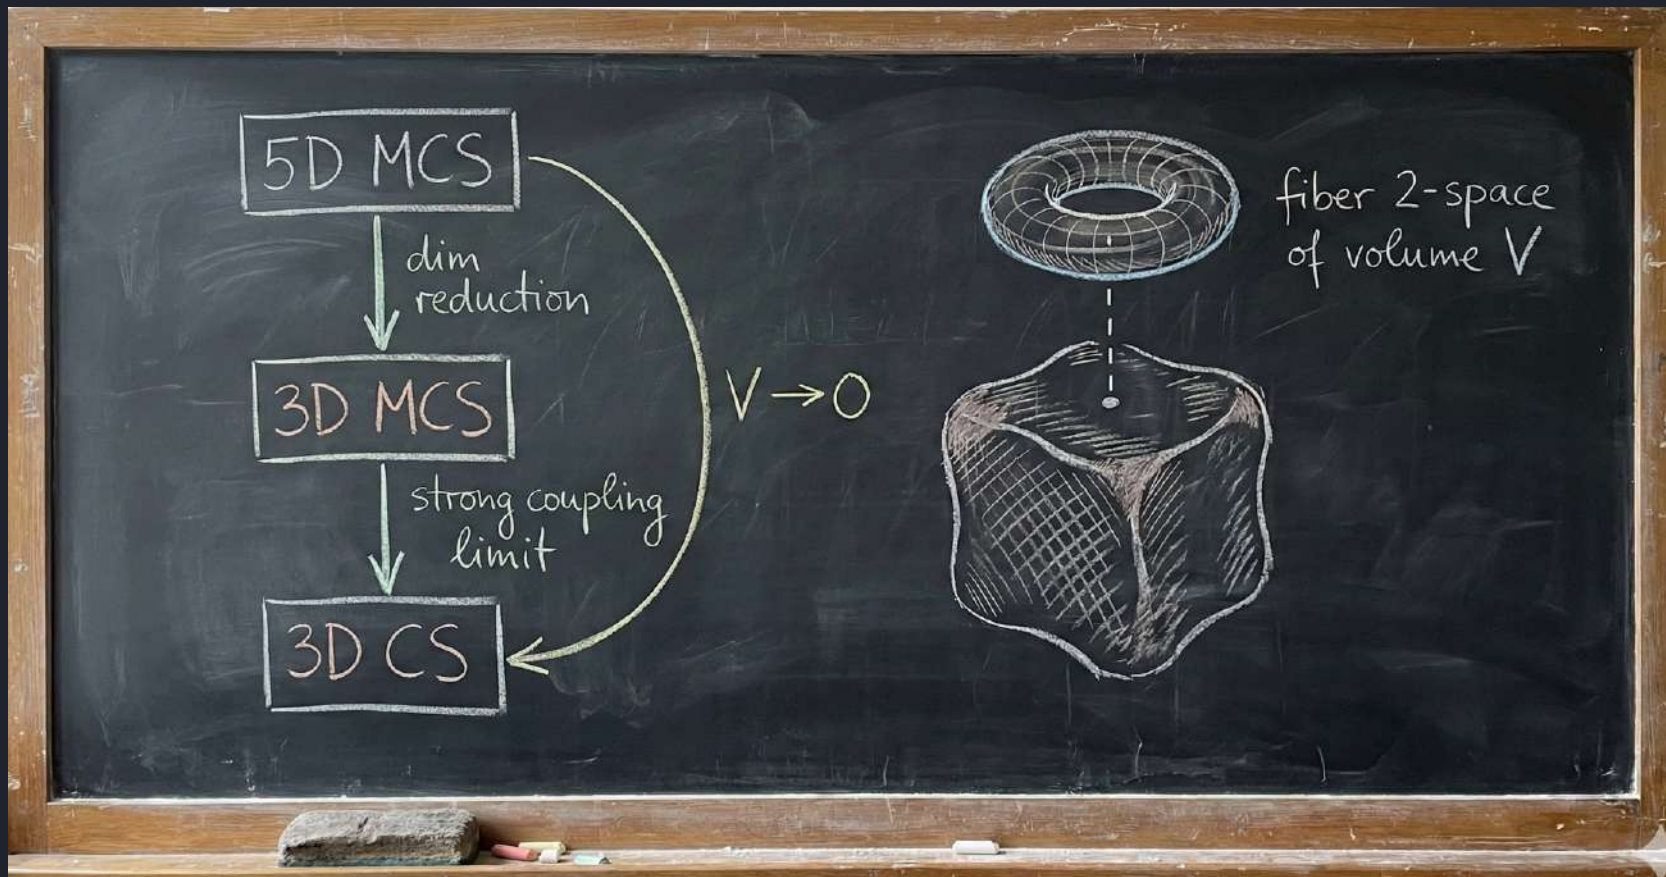 5D MCS
dim
reduction
3D MCS
V → O
strong coupling
limit
3D CS
fiber 2-space
of volume V